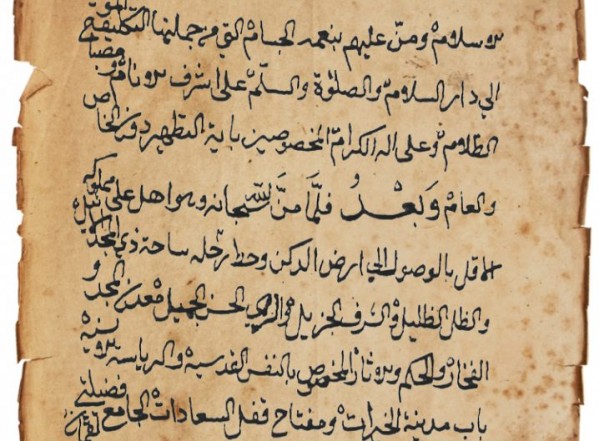 سلام ومنّ عليهم بنعمه الجسام التي من جملتها التكليف
الي دار السلام والصلوة والسلم على اشرف
الظلام وعلى اله الكرام المخصوصين باية التطهير دون الخاص
والعام وَبَعْدُ فلمَّا منَّ الله سبحانه وهو اهل على مملوكه
الاقل بالوصول الي ارض الدكن وحط رحله ساحة ذي المجد
والظل الظليل والشرف الجزيل والراي الحسن الجميل معدن المجد و
الفخار والحكم المخصوص بالنفس القدسيه والرياسه
باب مدينة الخيرات ومفتاح قفل السعادات الجامع فضيلتي